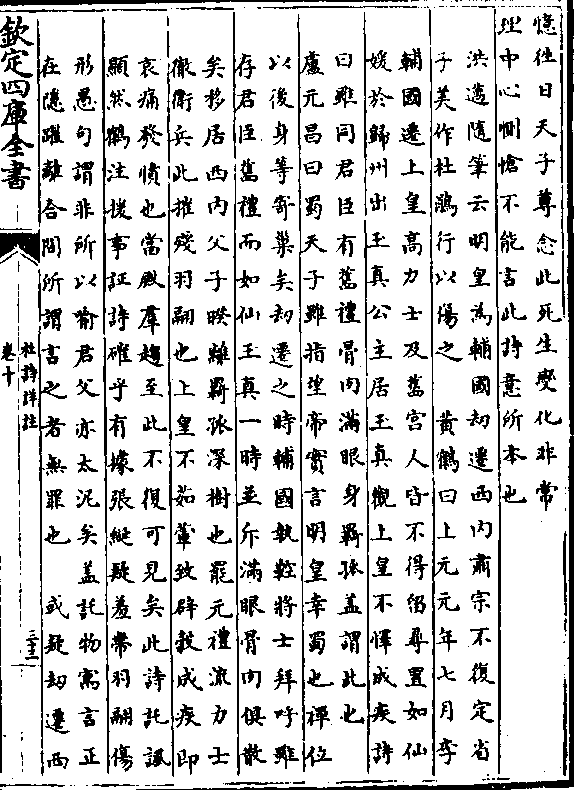 憶往日天子尊念此死生變化非常
理中心惻愴不能言此詩意所本也
洪邁隨筆云明皇為輔國劫遷西内肅宗不復定省
子美作杜鵑行以傷之　黄鶴曰上元元年七月李
輔國遷上皇高力士及舊宫人皆不得留尋置如仙
媛於歸州出玉真公主居玉真觀上皇不懌成疾詩
曰雖同君臣有舊禮骨肉滿眼身羇孤盖謂此也
盧元昌曰蜀天子雖指望帝實言明皇幸蜀也禪位
以後身等寄巢矣劫遷之時輔國執鞚將士拜呼雖
存君臣舊禮而如仙玉真一時並斥滿眼骨肉俱散
矣移居西内父子睽離羇孤深樹也罷元禮流力士
徹衛兵此摧殘羽翮也上皇不茹葷致辟穀成疾即
哀痛發憤也當殿羣趨至此不復可見矣此詩託諷
顯然鶴注援事証詩確乎有據張綖疑羞帶羽翮傷
形愚句謂非所以喻君父亦太泥矣盖託物寓言正
在隱躍離合間所謂言之者無罪也　或疑劫遷西
欽定四庫全書
杜詩詳註
卷十